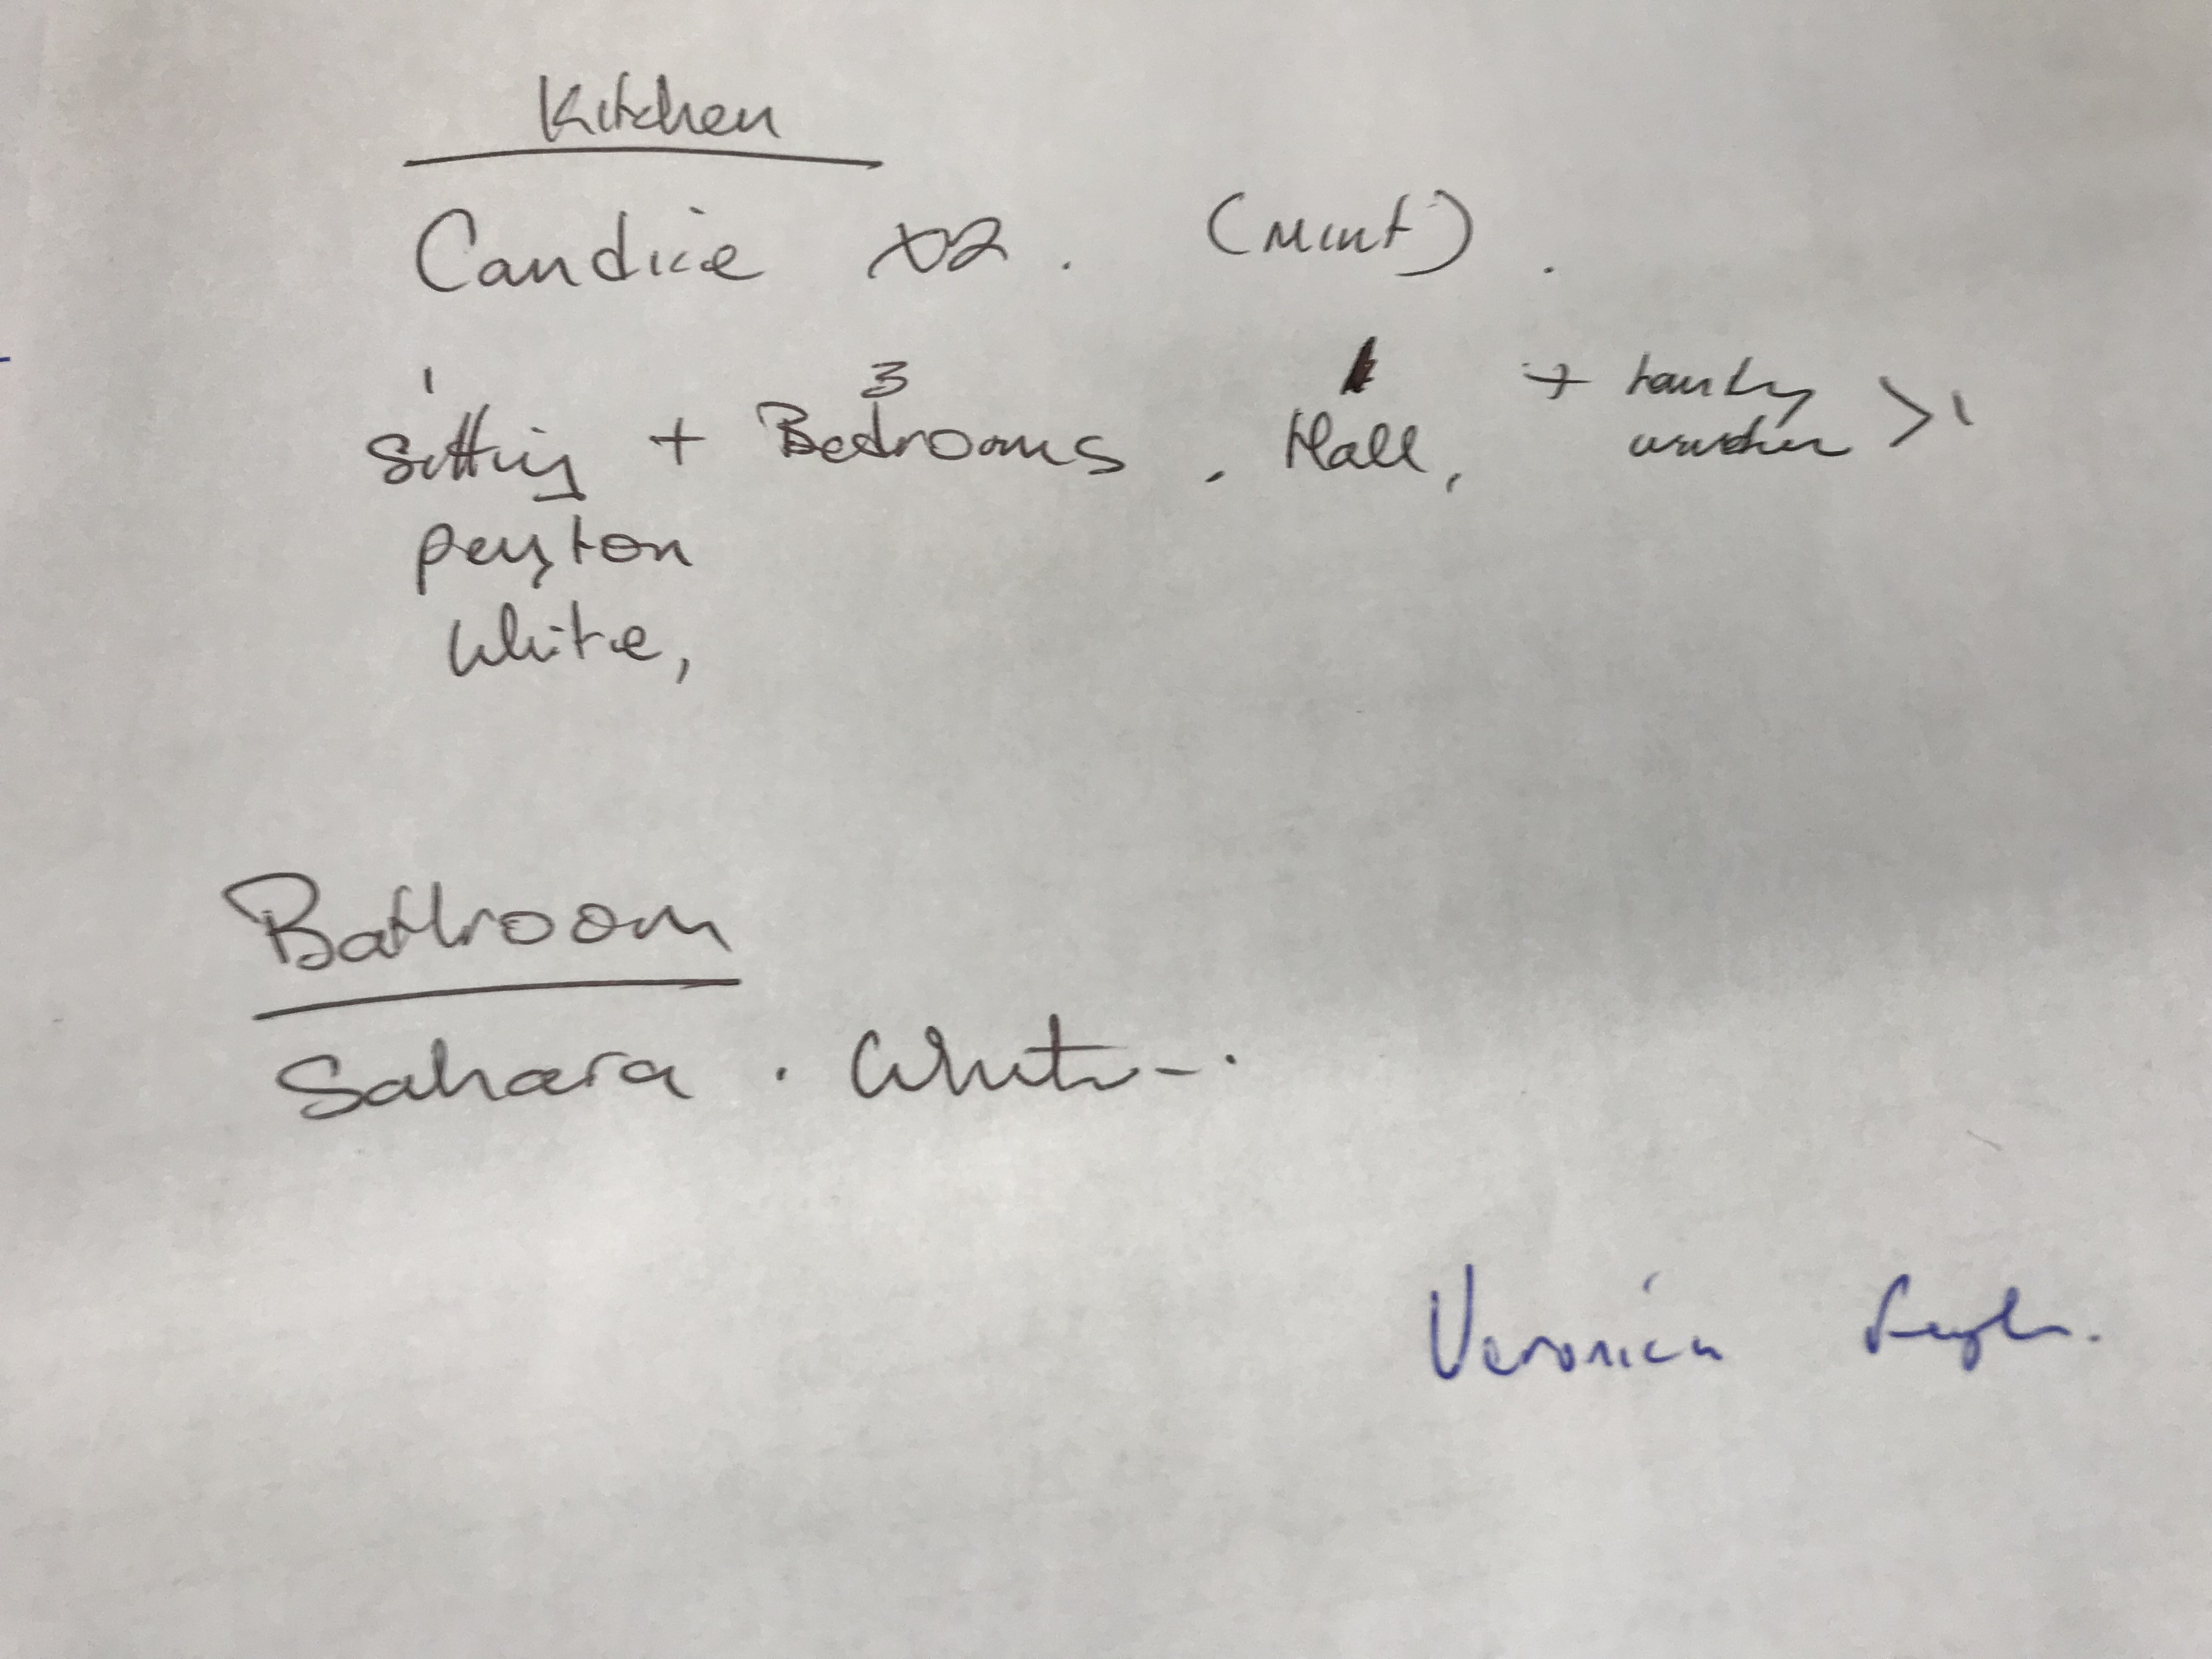 Kitchen
Candice x2. (Mint).
1 3
Sitting + Bedrooms, Hall, + > 1
peyton
white,
Bathroom
Sahara. White.
Veronica